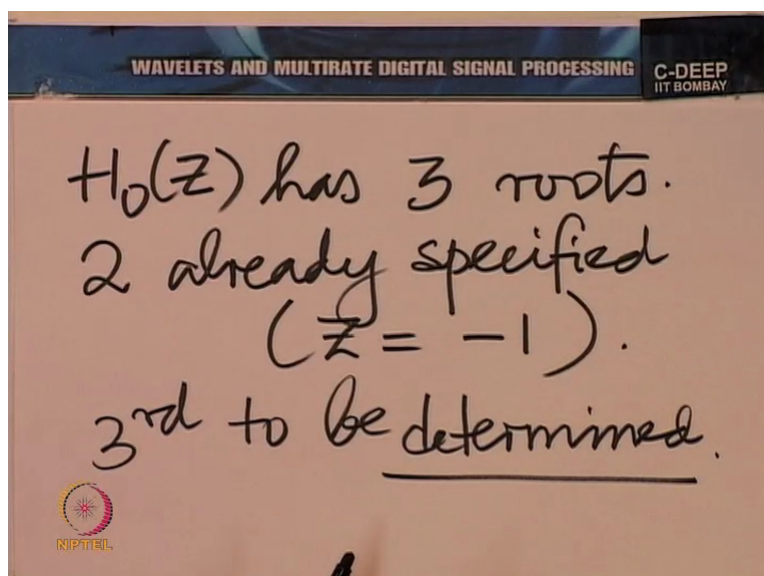 WAVELETS AND MULTIRATE DIGITAL SIGNAL PROCESSING
C-DEEP
IIT BOMBAY
H₀(Z) has 3 roots.
2 already specified
(Z = -1).
3rd to be determined.
NPTEL